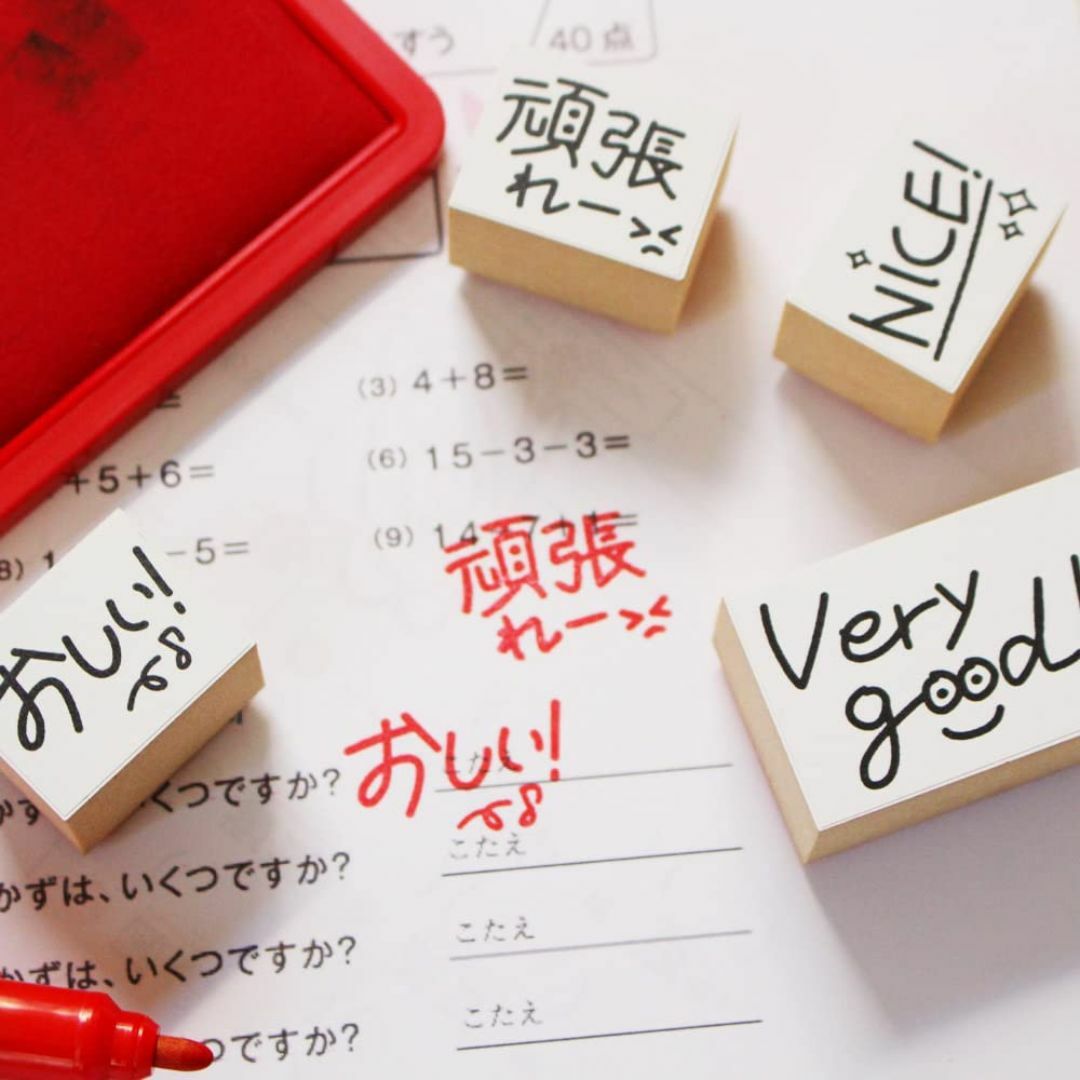 すう
40点
頑張
れー
NICE!
(3) 4+8=
+5+6=
(6) 15-3-3=
-5=
(9) 14-7+1=
頑張
れー
おしい!
Very
good!
おしい!
くつですか? こたえ
かずは、いくつですか? こたえ
かずは、いくつですか? こたえ
つですか? こたえ